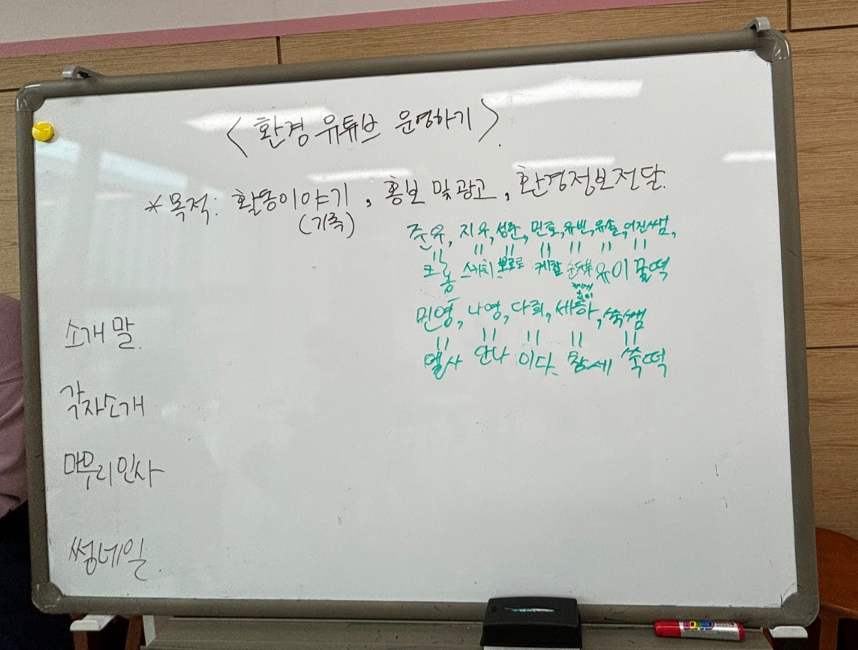 <환경 유튜브 운영하기>
*목적: 활동이야기, 홍보 및 광고, 환경정보전달.
(기록)
준유, 지우, 성준, 민호, 유빈, 유솔, 어진쌤,
크롱 스카치 뽀로로 케찰 유이 꿀떡
민영, 나영, 다희, 세하, 쑥쌤
엘사 안나 이다 참세 쑥떡
소개 말.
각자소개
마무리인사
썸네일.